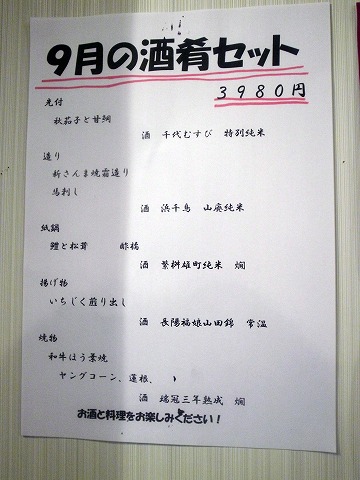 9月の酒肴セット
3980円
先付
秋茄子と甘鯛
酒 千代むすび 特別純米
造り
新さんま焼霜造り
馬刺し
酒 浜千鳥 山廃純米
紙鍋
鱧と松茸 酢橘
酒 繁桝雄町純米 燗
揚げ物
いちじく煎り出し
酒 長陽福娘山田錦 常温
焼物
和牛ほう葉焼
ヤングコーン、蓮根、
酒 瑞冠三年熟成 燗
お酒と料理をお楽しみください!